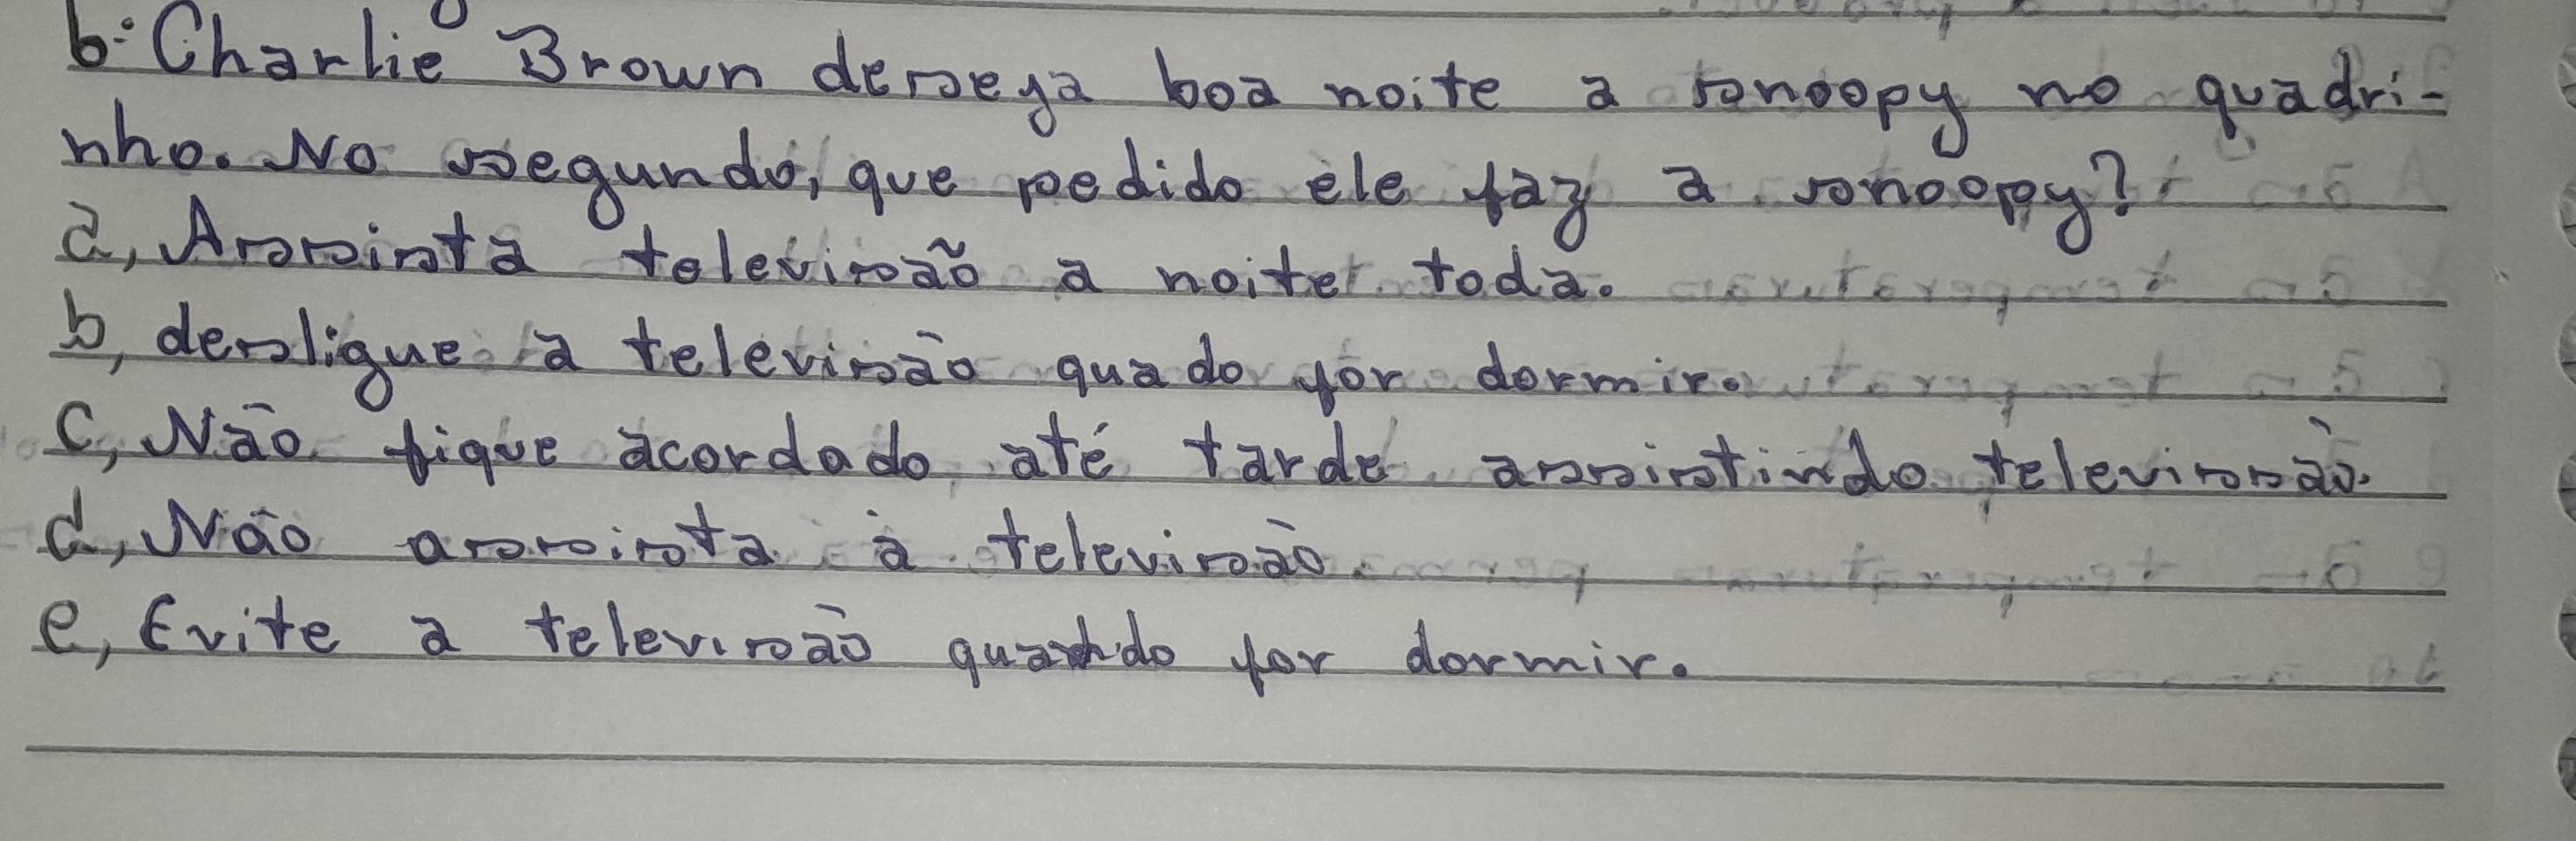 b: Charlie Brown deseja boa noite a snoopy no quadri-
nho. No segundo, que pedido ele faz a snoopy?
a, Assista televisão a noite toda.
b, desligue a televisão quado for dormir.
c, Não fique acordado até tarde assistindo televissão.
d, Não assista à televisão.
e, Evite a televisão quando for dormir.